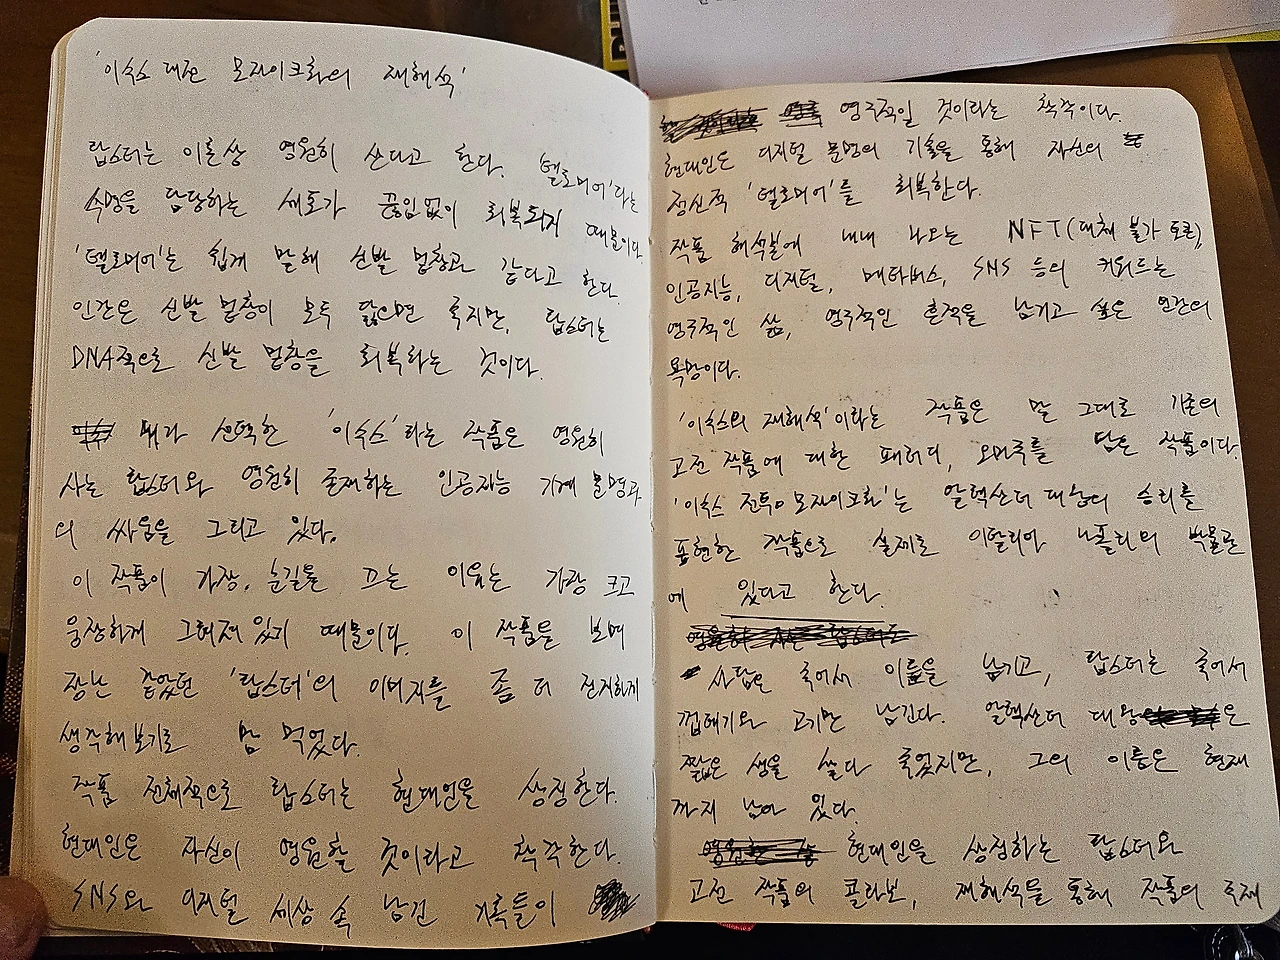 '이수스 대전 모자이크화의 재해석'
랍스터는 이론상 영원히 산다고 한다. '텔로미어'라는
수명을 담당하는 세포가 끊임없이 회복되기 때문이다.
'텔로미어'는 쉽게 말해 신발 밑창과 같다고 한다.
인간은 신발 밑창이 모두 닳으면 죽지만, 랍스터는
DNA적으로 신발 밑창을 회복하는 것이다.
내가 선택한 '이수스'라는 작품은 영원히
사는 랍스터와 영원히 존재하는 인공지능 기계 문명과
의 싸움을 그리고 있다.
이 작품이 가장. 눈길을 끄는 이유는 가장 크고
웅장하게 그려져있기 때문이다. 이 작품을 보며
장난 같았던 '랍스터'의 이미지를 좀 더 진지하게
생각해보기로 맘 먹었다.
작품 전체적으로 랍스터는 현대인을 상징한다.
현대인은 자신이 영원할 것이라고 착각한다.
SNS와 디지털 세상 속 남긴 기록들이
영구적일 것이라는 착각이다.
현대인은 디지털 문명의 기술을 통해 자신의
정신적 '텔로미어'를 회복한다.
작품 해석본에 내내 나오는 NFT(대체 불가 토큰),
인공지능, 디지털, 메타버스, SNS 등의 키워드는
영구적인 삶, 영구적인 흔적을 남기고 싶은 인간의
욕망이다.
'이수스의 재해석'이라는 작품은 말 그대로 기존의
고전 작품에 대한 패러디, 오마주를 담은 작품이다.
'이수스 전투 모자이크화'는 알렉산더 대왕의 승리를
표현한 작품으로 실제로 이탈리아 나폴리의 박물관
에 있다고 한다.
사람은 죽어서 이름을 남기고, 랍스터는 죽어서
껍데기와 고기만 남긴다. 알렉산더 대왕은
짧은 생을 살다 죽었지만, 그의 이름은 현재
까지 남아 있다.
현대인을 상징하는 랍스터와
고전 작품의 콜라보, 재해석을 통해 작품의 주제